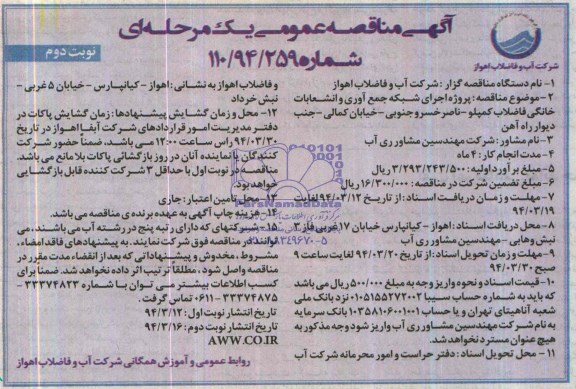 آگهی مناقصه عمومی یک مرحله‌ای
شماره ۱۱۰/۹۴/۲۵۹
نوبت دوم
شرکت آب و فاضلاب اهواز
۱- نام دستگاه مناقصه گزار : شرکت آب و فاضلاب اهواز
۲- موضوع مناقصه : پروژه اجرای شبکه جمع آوری و انشعابات
خانگی فاضلاب کمپلو - ناصر خسرو جنوبی - خیابان کمالی - جنب
دیوار راه آهن
۳- نام مشاور : شرکت مهندسین مشاور ری آب
۴- مدت انجام کار : ۴ ماه
۵- مبلغ برآورد اولیه : ۳/۲۹۳/۲۴۳/۵۰۰ ریال
۶- مبلغ تضمین شرکت در مناقصه : ۱۶/۳۰۰/۰۰۰ ریال
۷- مهلت و زمان دریافت اسناد : از تاریخ ۹۴/۰۳/۱۲ لغایت
۹۴/۰۳/۱۹
۸- محل دریافت اسناد : اهواز - کیانپارس خیابان ۱۷ غربی فاز ۳
نبش وهابی - مهندسین مشاور ری آب
۹- مهلت و زمان تحویل اسناد : از تاریخ ۹۴/۰۳/۲۰ لغایت ساعت ۹
صبح ۹۴/۰۳/۳۰
۱۰- قیمت اسناد و نحوه واریز وجه به مبلغ ۵۰۰/۰۰۰ ریال می باشد
که باید به شماره حساب سیبا ۰۱۰۵۱۵۵۲۷۲۰۰۲ نزد بانک ملی
شعبه آناهیتای تهران و یا حساب ۱۰۳۵۸۱۰۶۰۰۱۰۰۱ بانک سرمایه
به نام شرکت مهندسین مشاور ری آب واریز شود وجه مذکور به
هیچ عنوان مسترد نخواهد شد.
۱۱- محل تحویل اسناد : دفتر حراست و امور محرمانه شرکت آب
و فاضلاب اهواز به نشانی : اهواز - کیانپارس - خیابان ۵ غربی -
نبش خرداد
۱۲- محل و زمان گشایش پیشنهادها : زمان گشایش پاکات در
دفتر مدیریت امور قراردادهای شرکت آبفا اهواز در تاریخ
۹۴/۰۳/۳۰ راس ساعت ۱۲:۰۰ می باشد، ضمنا حضور شرکت
کنندگان یا نماینده آنان در روز بازگشائی پاکات بلامانع می باشد.
مناقصه در نوبت اول با حداقل ۳ شرکت کننده قابل بازگشایی
خواهد بود.
۱۳- محل تامین اعتبار : جاری
۱۴- هزینه چاپ آگهی به عهده برنده ی مناقصه می باشد.
۱۵- شرکتهای که دارای رتبه پنج در رشته آب می باشند، می
توانند در مناقصه فوق شرکت نمایند. به پیشنهادهای فاقد امضاء،
مشروط، مخدوش و پیشنهاداتی که بعد از انقضاء مدت مقرر در
مناقصه واصل شود، مطلقاً ترتیب اثر داده نخواهد شد. ضمنا برای
کسب اطلاعات بیشتر می توان با شماره ۳۳۳۷۴۸۲۳ -
۳۳۳۷۴۸۷۵ -۰۶۱۱ تماس گرفت.
تاریخ انتشار نوبت اول : ۹۴/۳/۱۲
تاریخ انتشار نوبت دوم : ۹۴/۳/۱۶
AWW.CO.IR
روابط عمومی و آموزش همگانی شرکت آب و فاضلاب اهواز
ParsNamadData